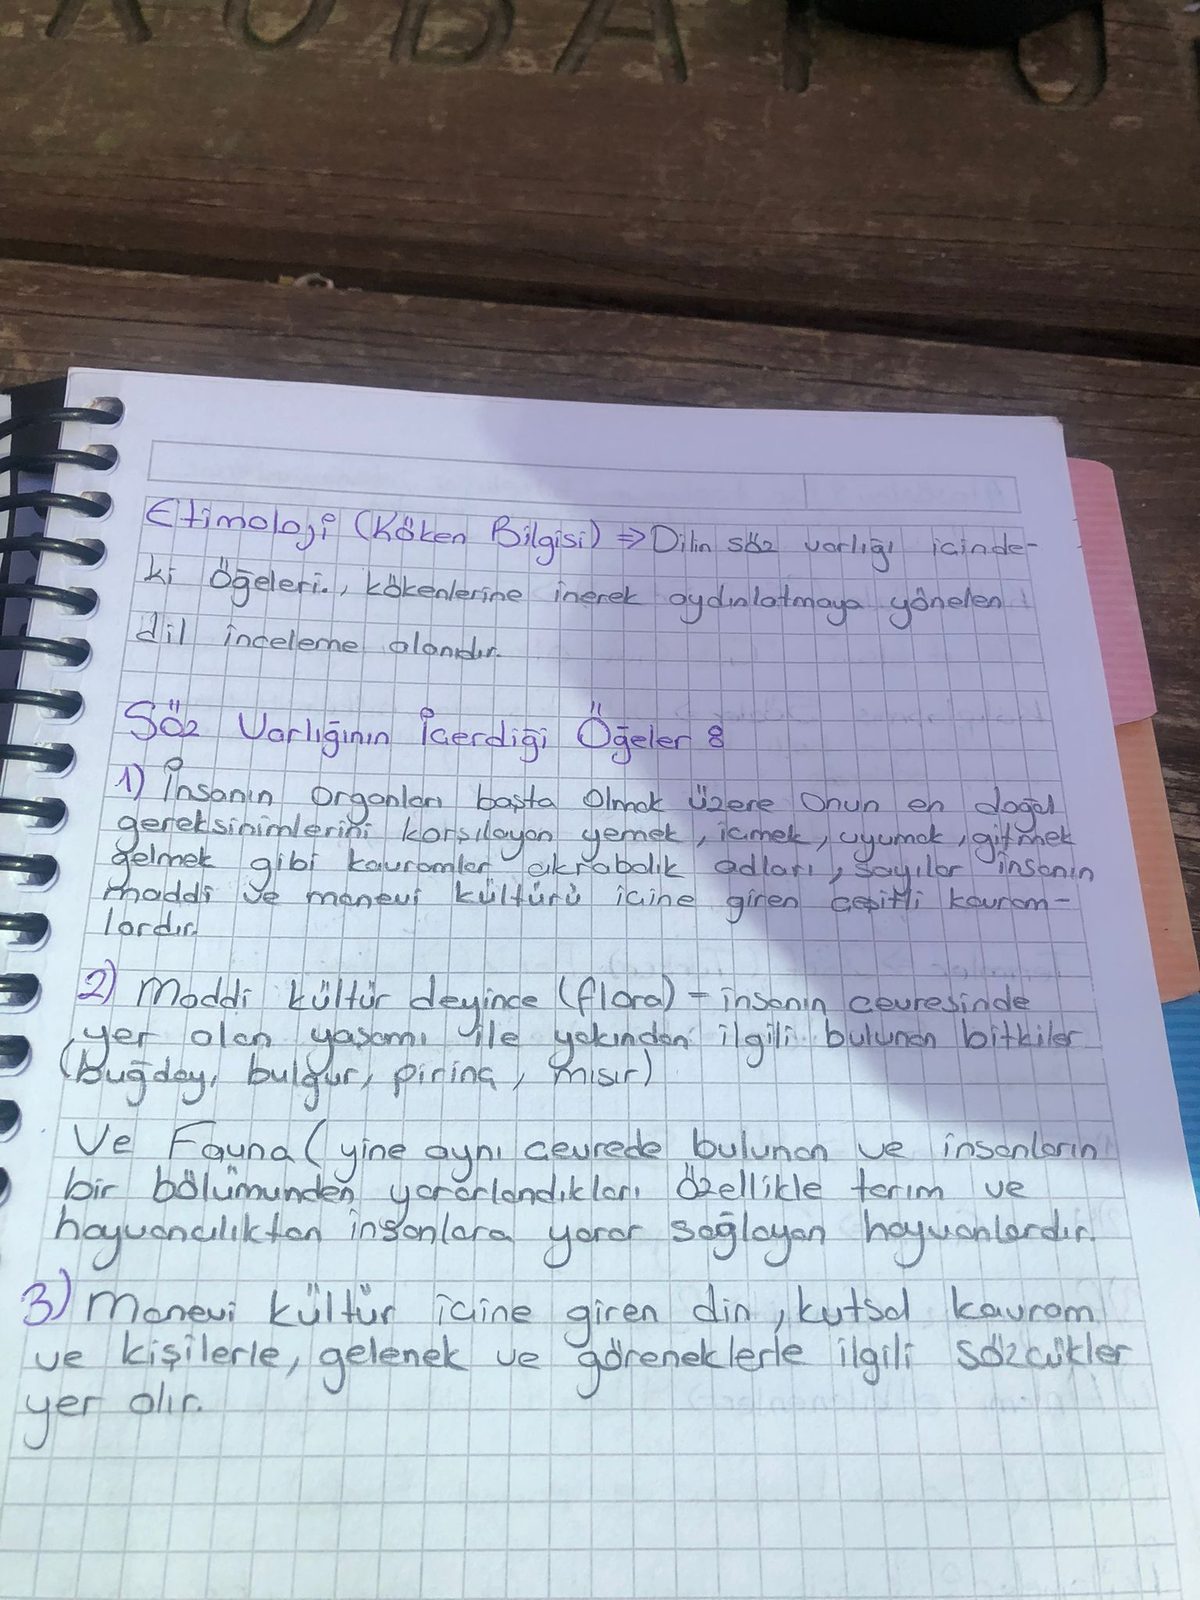 Etimoloji (Köken Bilgisi) ⇒ Dilin söz varlığı içinde-
ki öğeleri., kökenlerine inerek aydınlatmaya yönelen
dil inceleme alanıdır.
Söz Varlığının İçerdiği Öğeler :
1) İnsanın organları başta olmak üzere onun en doğal
gereksinimlerini karşılayan yemek, içmek, uyumak, gitmek
gelmek gibi kavramlar akrabalık adları, sayılar insanın
maddi ve manevi kültürü içine giren çeşitli kavram-
lardır.
2) Maddi kültür deyince (flora) - insanın çevresinde
yer alan yaşamı ile yakından ilgili bulunan bitkiler
(buğday, bulgur, pirinç, mısır)
Ve Fauna (yine aynı çevrede bulunan ve insanların
bir bölümünden yararlandıkları özellikle tarım ve
hayvancılıktan insanlara yarar sağlayan hayvanlardır.
3) Manevi kültür içine giren din, kutsal kavram
ve kişilerle, gelenek ve göreneklerle ilgili sözcükler
yer alır.